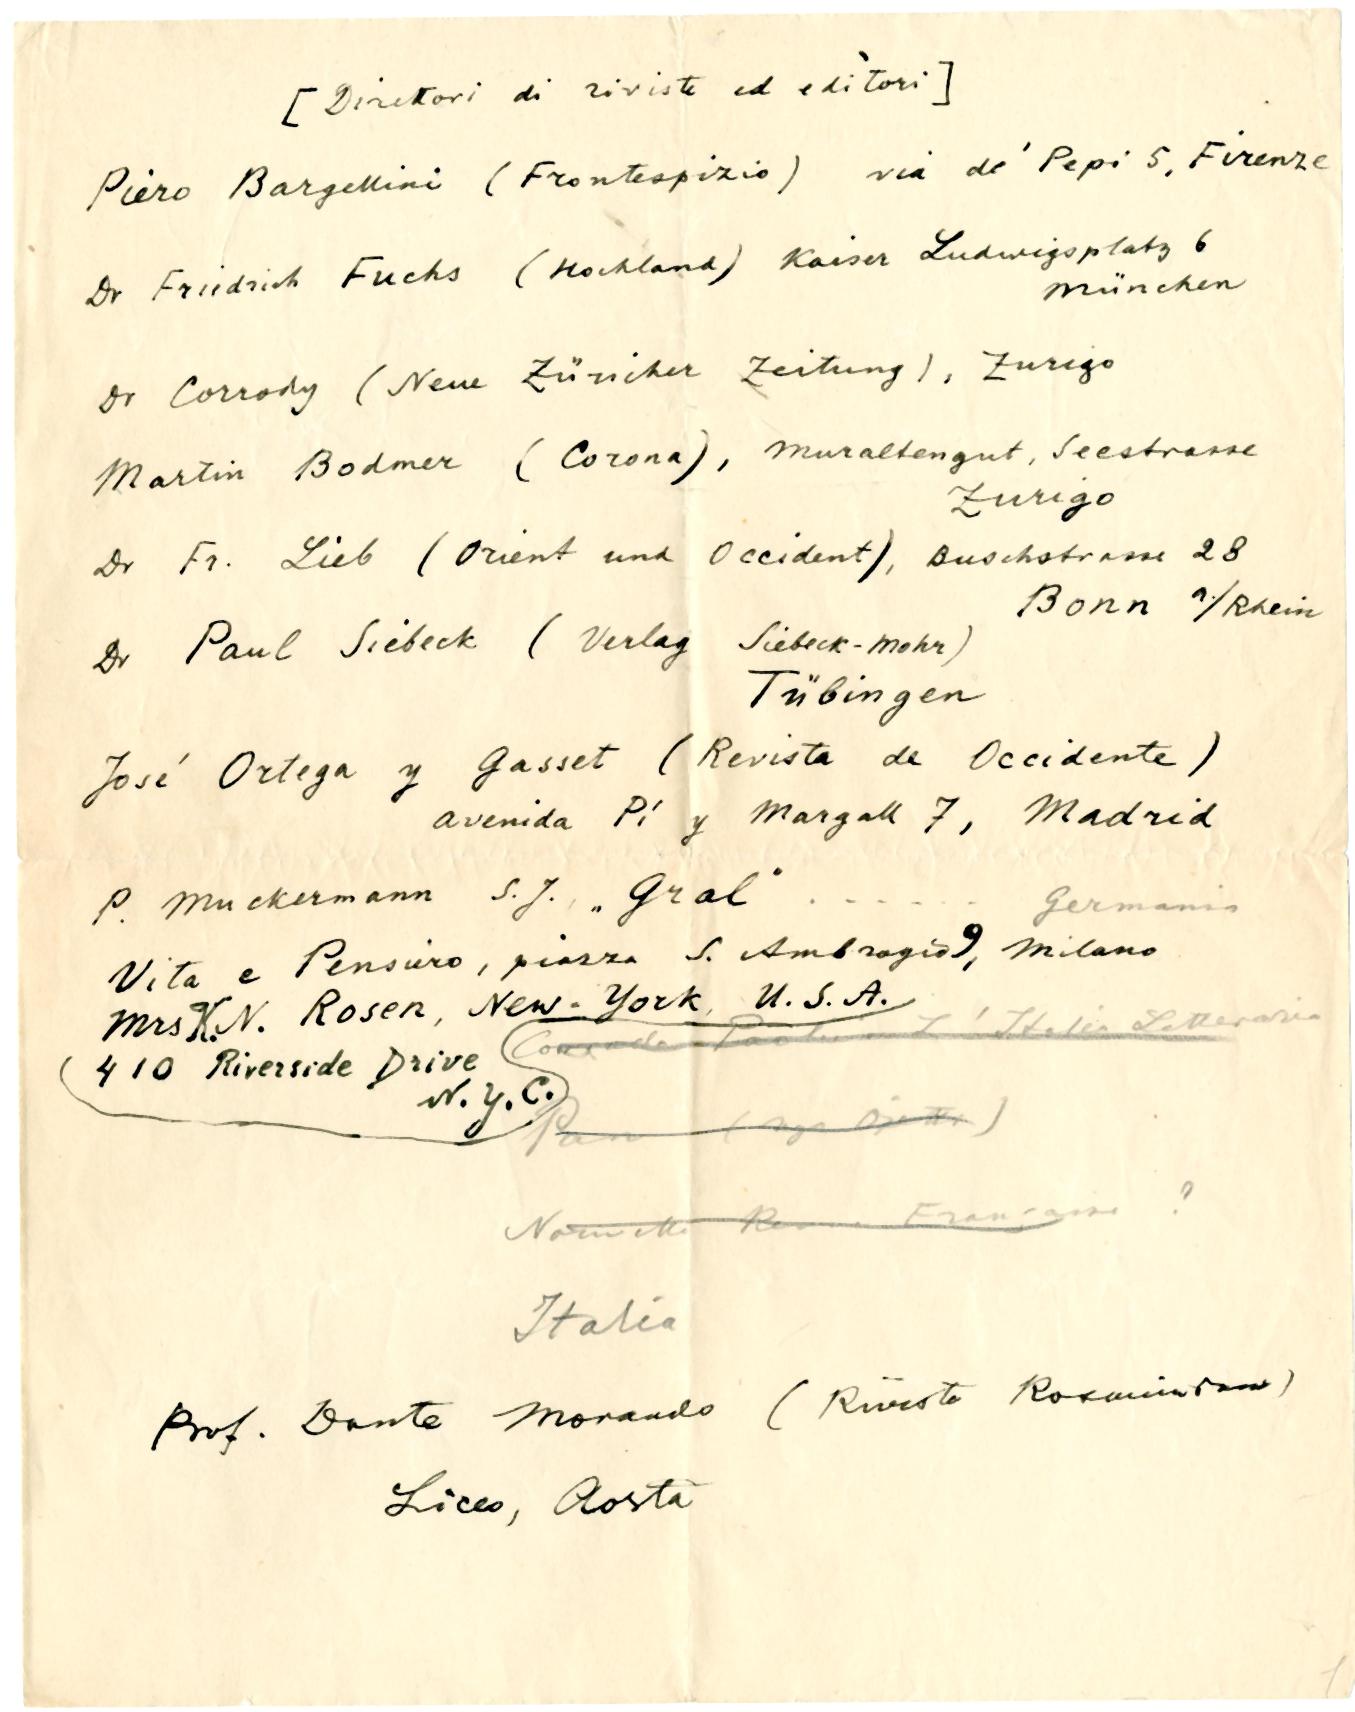 [Direttori di riviste ed editori]
Piero Bargellini (Frontespizio) via de' Pepi 5, Firenze
Dr Friedrich Fuchs (Hochland) Kaiser Ludwigsplatz 6
München
Dr Corrody (Neue Züricher Zeitung), Zurigo
Martin Bodmer (Corona), Muraltengut, Seestrasse
Zurigo
Dr Fr. Lieb (Orient und Occident), Buschstrasse 28
Bonn a/Rhein
Dr Paul Siebeck (Verlag Siebeck-Mohr)
Tübingen
José Ortega y Gasset (Revista de Occidente)
Avenida Pí y Margall 7, Madrid
P. Muckermann S.J. „Gral" . - - - - - - Germania
Vita e Pensiero, piazza S. Ambrogio 9, Milano
Mrs K.N. Rosen, New-York, U.S.A.
L'Italia Letteraria
410 Riverside Drive
N.Y.C.
Pan (Ugo Ojetti)
Française ?
Italia
Prof. Dante Morando (Rivista Rosminiana)
Liceo, Aosta